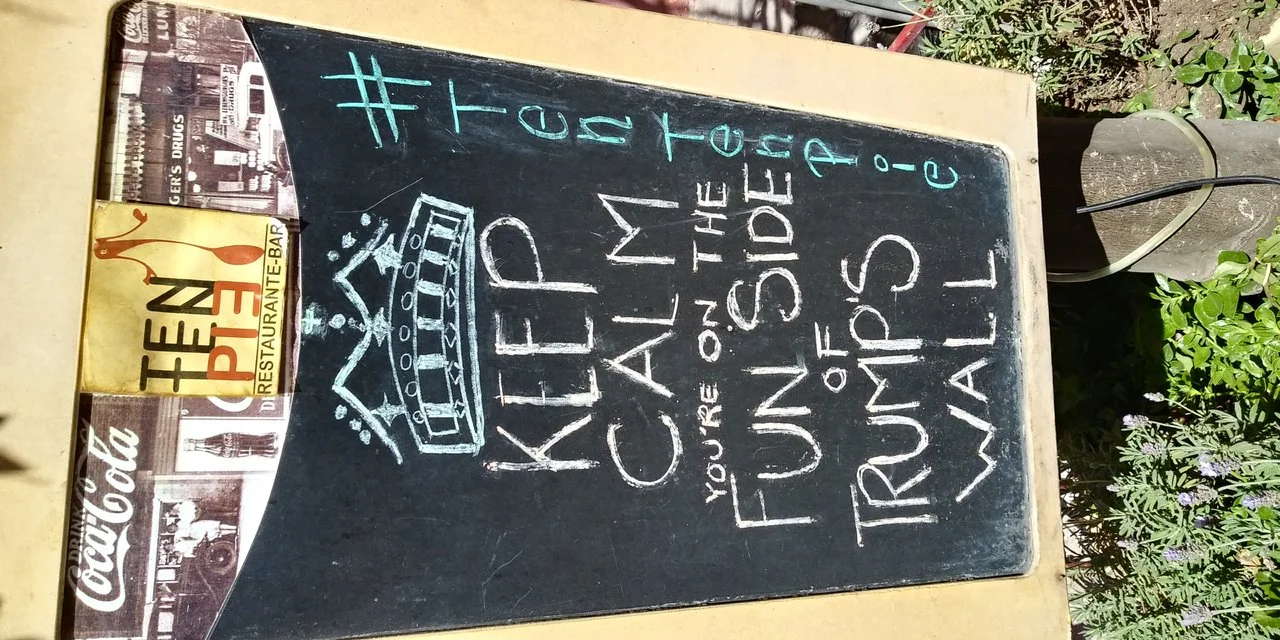 DRINK
Coca-Cola
GER'S DRUGS
DRUGS
TEN
PIE
RESTAURANTE-BAR
KEEP
CALM
YOU'RE ON THE
FUN SIDE
OF
TRUMP'S
WALL
#TenTenPie